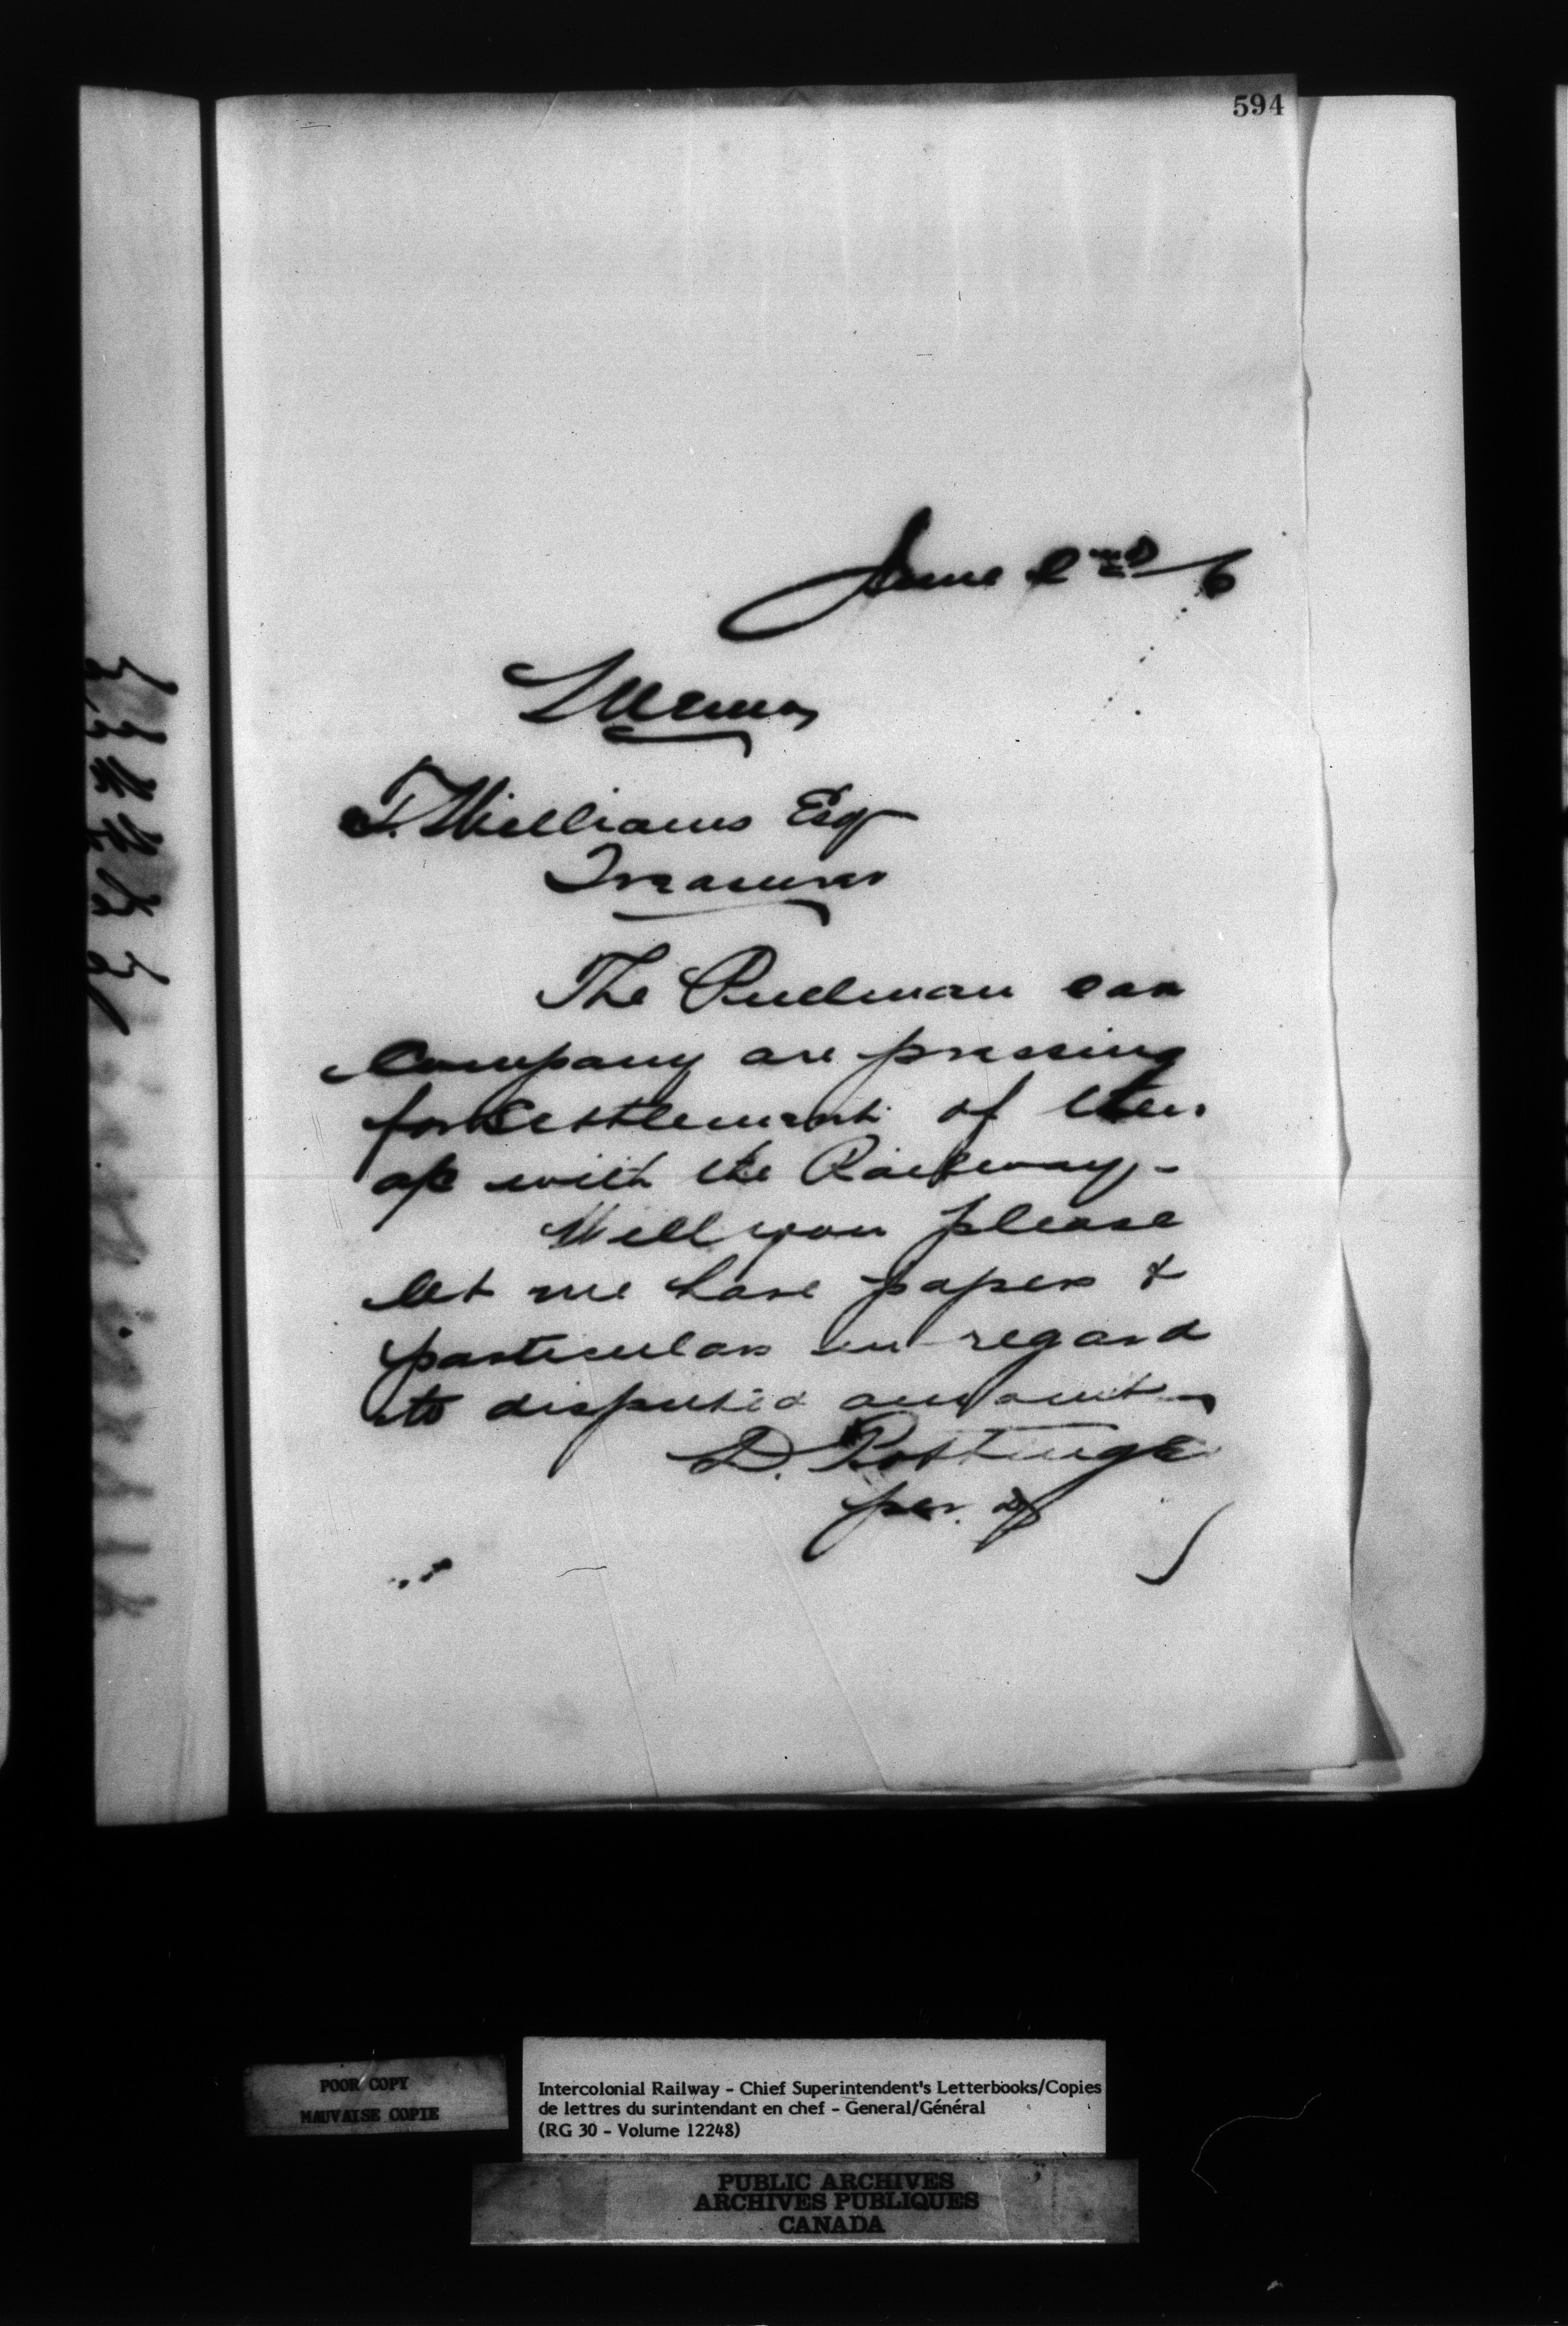 594
June 2nd 6
Memo
T. Williams Esq
Treasurer
The Pullman car
Company are pressing
for settlement of their
a/c with the Railway -
Will you please
let me have papers &
particulars in regard
to disputed amounts
D. Pottinger
per.
POOR COPY
MAUVAISE COPIE
Intercolonial Railway - Chief Superintendent's Letterbooks/Copies
de lettres du surintendant en chef - General/Général
(RG 30 - Volume 12248)
PUBLIC ARCHIVES
ARCHIVES PUBLIQUES
CANADA